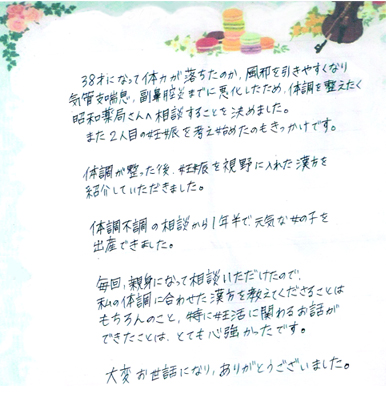 38才になって体力が落ちたのか、風邪を引きやすくなり
気管支喘息、副鼻腔炎までに悪化したため、体調を整えたく
昭和薬局さんへ相談することを決めました。
また2人目の妊娠を考え始めたのもきっかけです。
体調が整った後、妊娠を視野に入れた漢方を
紹介していただきました。
体調不調の相談から1年半で、元気な女の子を
出産できました。
毎回、親身になって相談いただけたので、
私の体調に合わせた漢方を教えてくださることは
もちろんのこと、特に妊活に関わるお話が
できたことは、とても心強かったです。
大変お世話になり、ありがとうございました。